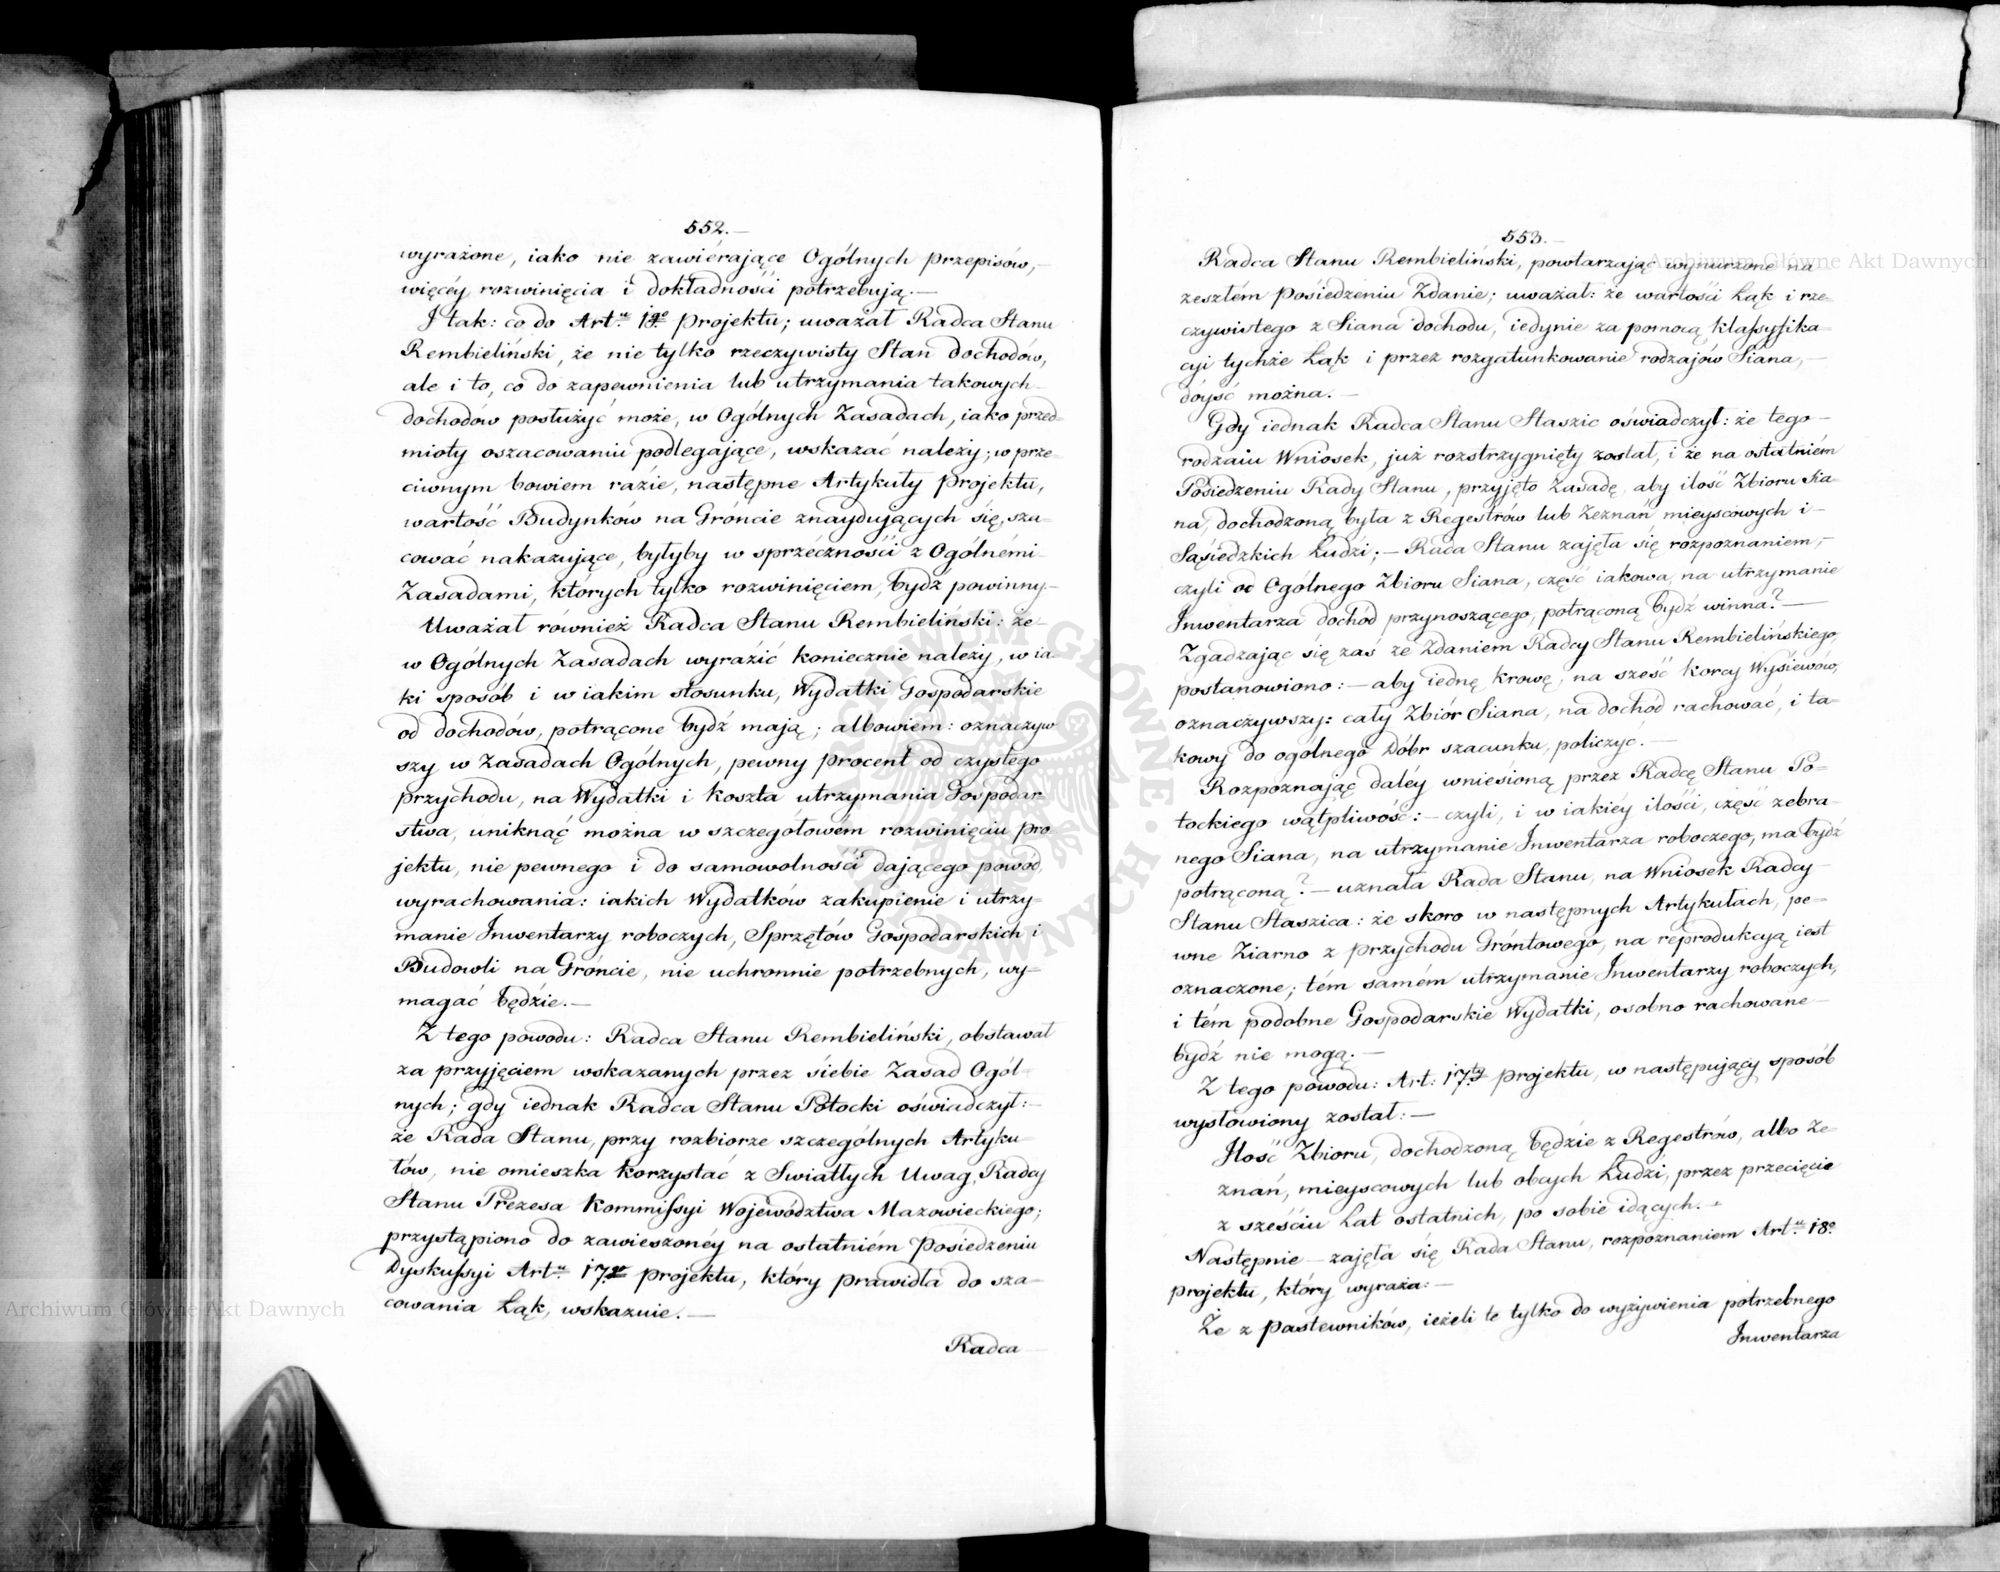 552.—
wyrażone, iako nie zawiérające Ogólnych przepisów,—
więcéy rozwinięcia i dokładności potrzebują.—
I tak: co do Art.u 1go projektu; uważał Radca Stanu
Rembieliński, że nie tylko rzeczywisty Stan dochodów,
ale i to, co do zapewnienia lub utrzymania takowych—
dochodów posłużyć może, w Ogólnych Zasadach, iako przed=
mioty oszacowaniu podlegające, wskazać należy; w prze=
ciwnym bowiem razie, następne Artykuły projektu,
wartość Budynków na Gróncie znaydujących się, sza=
cować nakazujące, byłyby w sprzéczności z Ogólnémi—
Zasadami, których tylko rozwinięciem, bydź powinny.—
Uważał również Radca Stanu Rembieliński: że—
w Ogólnych Zasadach wyrazić koniecznie należy, w ia=
ki sposób i w iakim stosunku, Wydatki Gospodarskie
od dochodów, potrącone bydź mają; albowiem: oznaczyw
szy w Zasadach Ogólnych, pewny procent od czystego
przychodu, na Wydatki i Koszta utrzymania Gospodar=
stwa, uniknąć można w szczegółowém rozwinięciu pro
jektu, nie pewnego i do samowolności dającego powód,
wyrachowania: iakich Wydatków zakupienie i utrzy=
manie Inwentarzy roboczych, Sprzętów Gospodarskich i
Budowli na Gróncie, nie uchronnie potrzebnych, wy=
magać będzie.—
Z tego powodu: Radca Stanu Rembieliński, obstawał
za przyjęciem wskazanych przez siebie Zasad Ogól=
nych; gdy iednak Radca Stanu Potocki oświadczył:—
że Rada Stanu, przy rozbiorze szczególnych Artyku=
łów, nie omieszka korzystać z Swiatłych Uwag, Radcy
Stanu Prezesa Kommissyi Województwa Mazowieckiego;
przystąpiono do zawieszonéy na ostatniém Posiedzeniu
Dyskussyi Art.u 17go projektu, który prawidła do sza=
cowania Łąk, wskazuie.—
Radca
553.—
Radca Stanu Rembieliński, powtarzając wynurzone na
zeszłém Posiedzeniu Zdanie; uważał: że wartości Łąk i rze=
czywistego z Siana dochodu, iedynie za pomocą, klassyfika=
cyi tychże Łąk i przez rozgatunkowanie rodzajów Siana,—
dóyść można.—
Gdy iednak Radca Stanu Staszic oświadczył: że tego—
rodzaiu Wniosek, już rozstrzygnięty został, i że na ostatniém
Posiedzeniu Rady Stanu, przyjęto Zasadę, aby ilość Zbioru Sia=
na, dochodzoną była z Regestrów lub Zeznań mieyscowych i—
Sąsiedzkich Ludzi;— Rada Stanu zajęła się rozpoznaniem,—
czyli od Ogólnego Zbioru Siana, część iakowa, na utrzymanie
Inwentarza dochód przynoszącego, potrąconą bydź winna?—
Zgadzając się zaś ze Zdaniem Radcy Stanu Rembielińskiego,
postanowiono:— aby iednę krowę, na sześć korcy Wysiewów,
oznaczywszy: cały Zbiór Siana, na dochód rachować, i ta=
kowy do ogólnego Dóbr szacunku, policzyć.—
Rozpoznając daléy wniesioną przez Radcę Stanu Po=
tockiego wątpliwość:— czyli, i w iakiéy ilości, część zebra=
nego Siana, na utrzymanie Inwentarza roboczego, ma bydź
potrąconą?— uznała Rada Stanu, na Wniosek Radcy—
Stanu Staszica: że skoro w następnych Artykułach, pe=
wne Ziarno z przychodu Gróntowego, na reprodukcyą iest
oznaczone; tém samém utrzymanie Inwentarzy roboczych,
i tém podobne Gospodarskie Wydatki, osobno rachowane—
bydź nie mogą.—
Z tego powodu: Art: 17ty projektu, w następujący sposób
wysłowiony został:—
Ilość Zbioru, dochodzoną będzie z Regestrów, albo Ze=
znań, mieyscowych lub obcych Ludzi, przez przecięcie
z sześciu Lat ostatnich, po sobie idących.—
Następnie— zajęła się Rada Stanu, rozpoznaniem Art.u 18o
projektu, który wyraża:—
Że z pastewników, ieżeli te tylko do wyżywienia potrzebnego
Inwentarza
Archiwum Główne Akt Dawnych
Archiwum Główne Akt Dawnych
ARCHIWUM GŁÓWNE AKT DAWNYCH